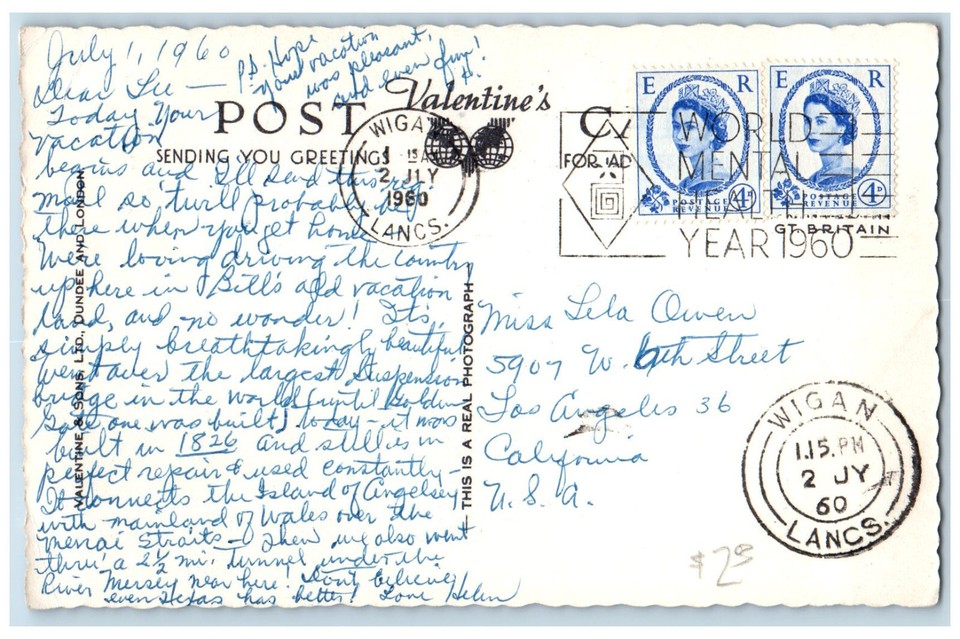 July 1, 1960
P.S. Hope
your vacation
was pleasant,
and even fun!
H.
Dear Lee —
Today your
vacation
begins and I'll send this reg.
mail so 'twill probably be
there when you get home.
We're loving driving the country
up here in Bill's old vacation
land, and no wonder! It's
simply breathtakingly beautiful
went over the largest suspension
bridge in the world (until Golden
Gate one was built) today – it was
built in 1826 and still is in
perfect repair & used constantly –
It connects the Island of Angelsey
with mainland of Wales over the
Menai Straits – Then we also went
thru' a 2½ mi. tunnel under the
River Mersey near here! Don't believe
even Texas has better! Love Helen
POST
Valentine's
CA
SENDING YOU GREETINGS
FOR
AD
GT. BRITAIN
VALENTINE & SONS, LTD., DUNDEE AND LONDON
THIS IS A REAL PHOTOGRAPH
WIGAN
2 JLY
1960
LANCS.
WORLD
MENTAL
HEALTH
YEAR 1960
E R
POSTAGE
REVENUE
4D
E R
POSTAGE
REVENUE
4D
Miss Lela Owen
5907 W. 6th Street
Los Angeles 36
California
U.S.A.
WIGAN
1.15.PM
2 JY
60
LANCS.
$2